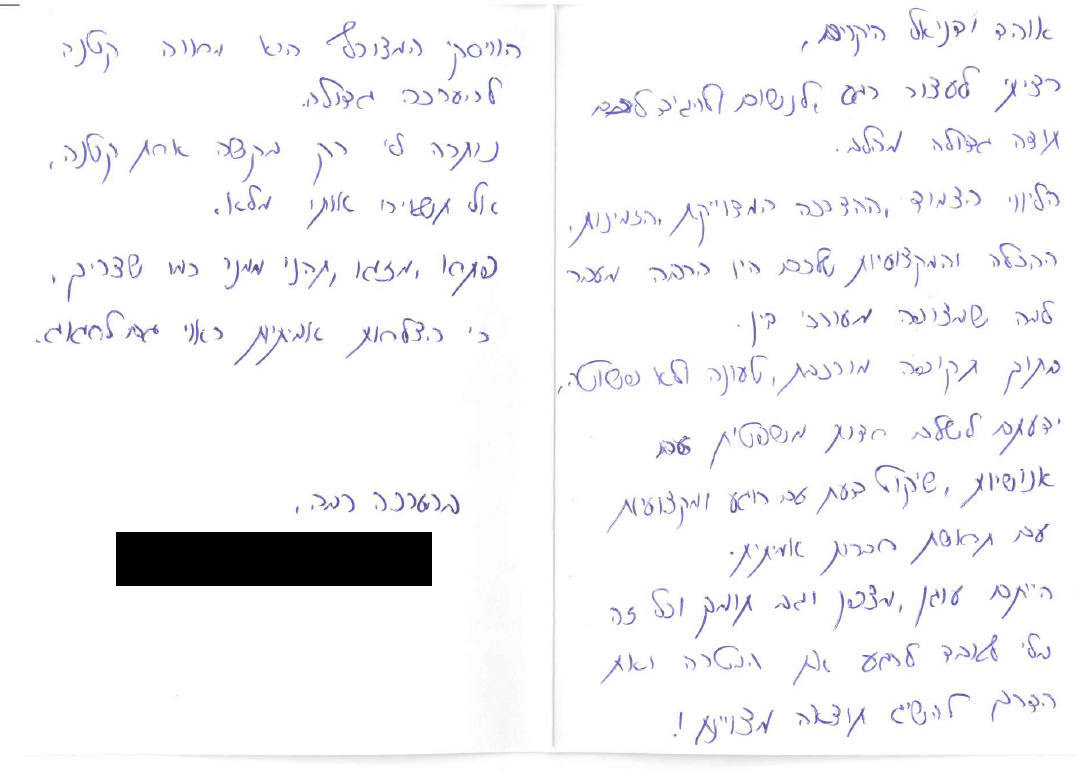 אוהד ודניאל היקרים,
רציתי לעצור רגע, לנשום ולהגיד לכם
תודה גדולה מהלב.
הליווי הצמוד, ההדרכה המדוייקת, הזמינות,
ההכלה והמקצועיות שלכם היו הרבה מעבר
למה שמצופה מעורכי דין.
בתוך תקופה מורכבת, טעונה ולא פשוטה,
ידעתם לשלב חדות משפטית עם
אנושיות, שיקול דעת עם רוגע ומקצועיות
עם תחושת חברות אמיתית.
הייתם עוגן, מצפן וגב תומך וכל זה
בלי לאבד לרגע את המטרה ואת
הדרך להשיג תוצאה מצויינת!
הוויסקי המצורף הוא מחווה קטנה
להערכה גדולה.
נותרה לי רק בקשה אחת קטנה,
אל תשאירו אותי מלא.
פתחו, מזגו, תהנו ממני כמו שצריך,
כי הצלחות אמיתיות ראוי גם לחגוג.
בהערכה רבה,